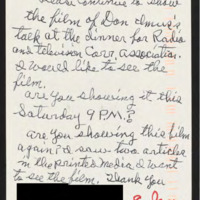 Please continue to show
the film of Don Imus's
talk at the dinner for Radio
and television Corr. association.
I would like to see the
film.
are you showing it this
Saturday 9 P.M.?
are you showing this film
again? I saw two articles
in the printed media, I want
to see the film. Thank you